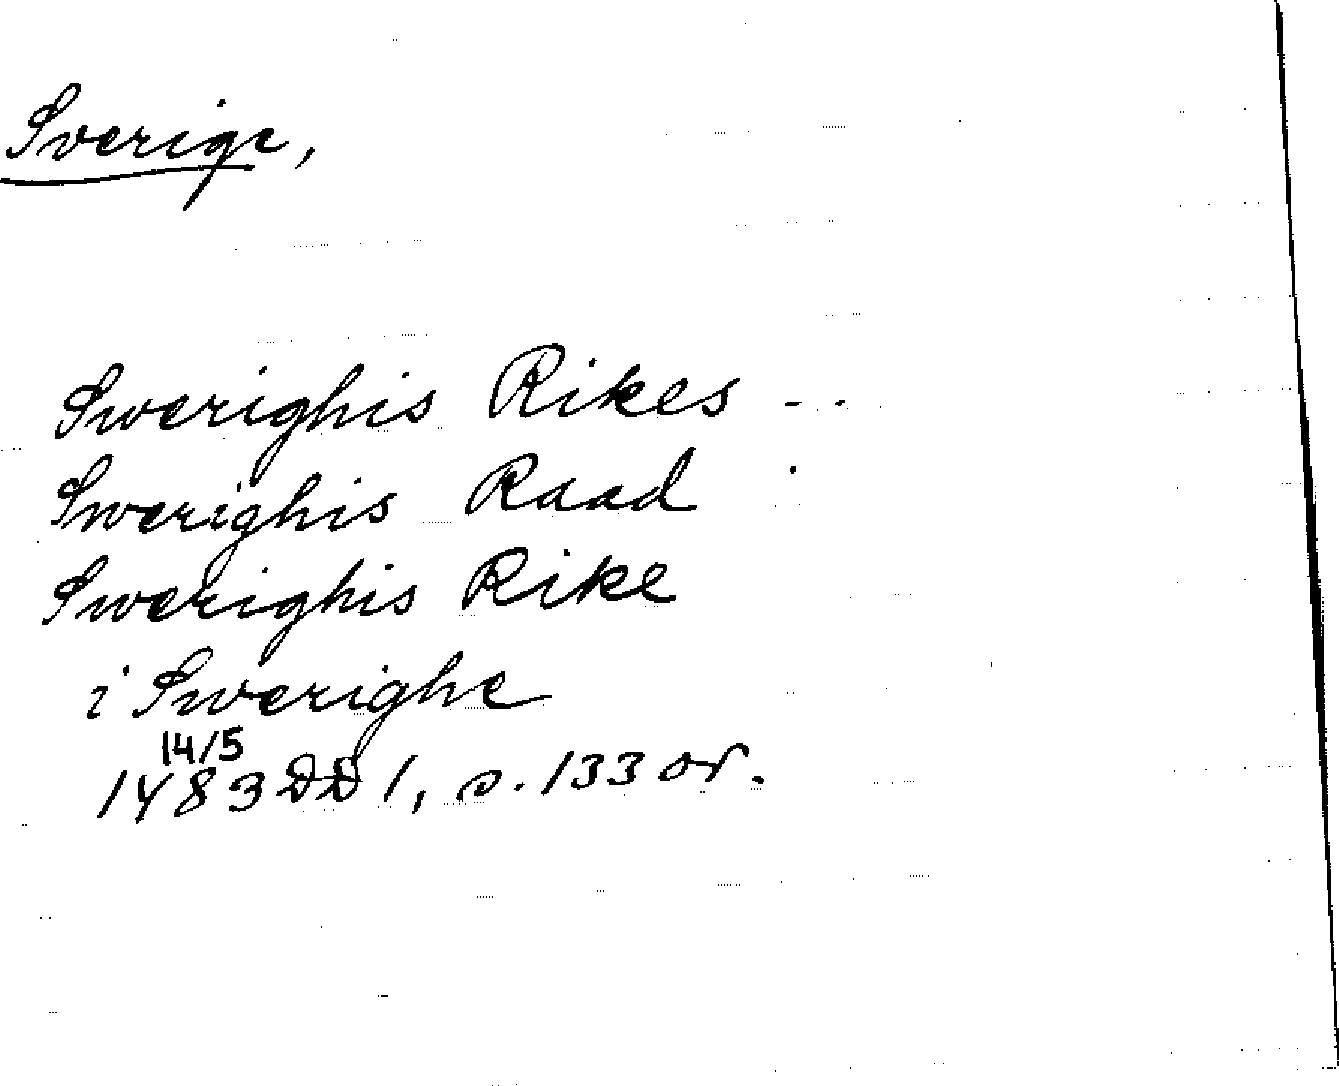 Sverige,
Swerighis Rikes - .
Swerighis Raad
Swerighis Rike
i Swerighe
14/5
1483 DD 1, s. 133 or.